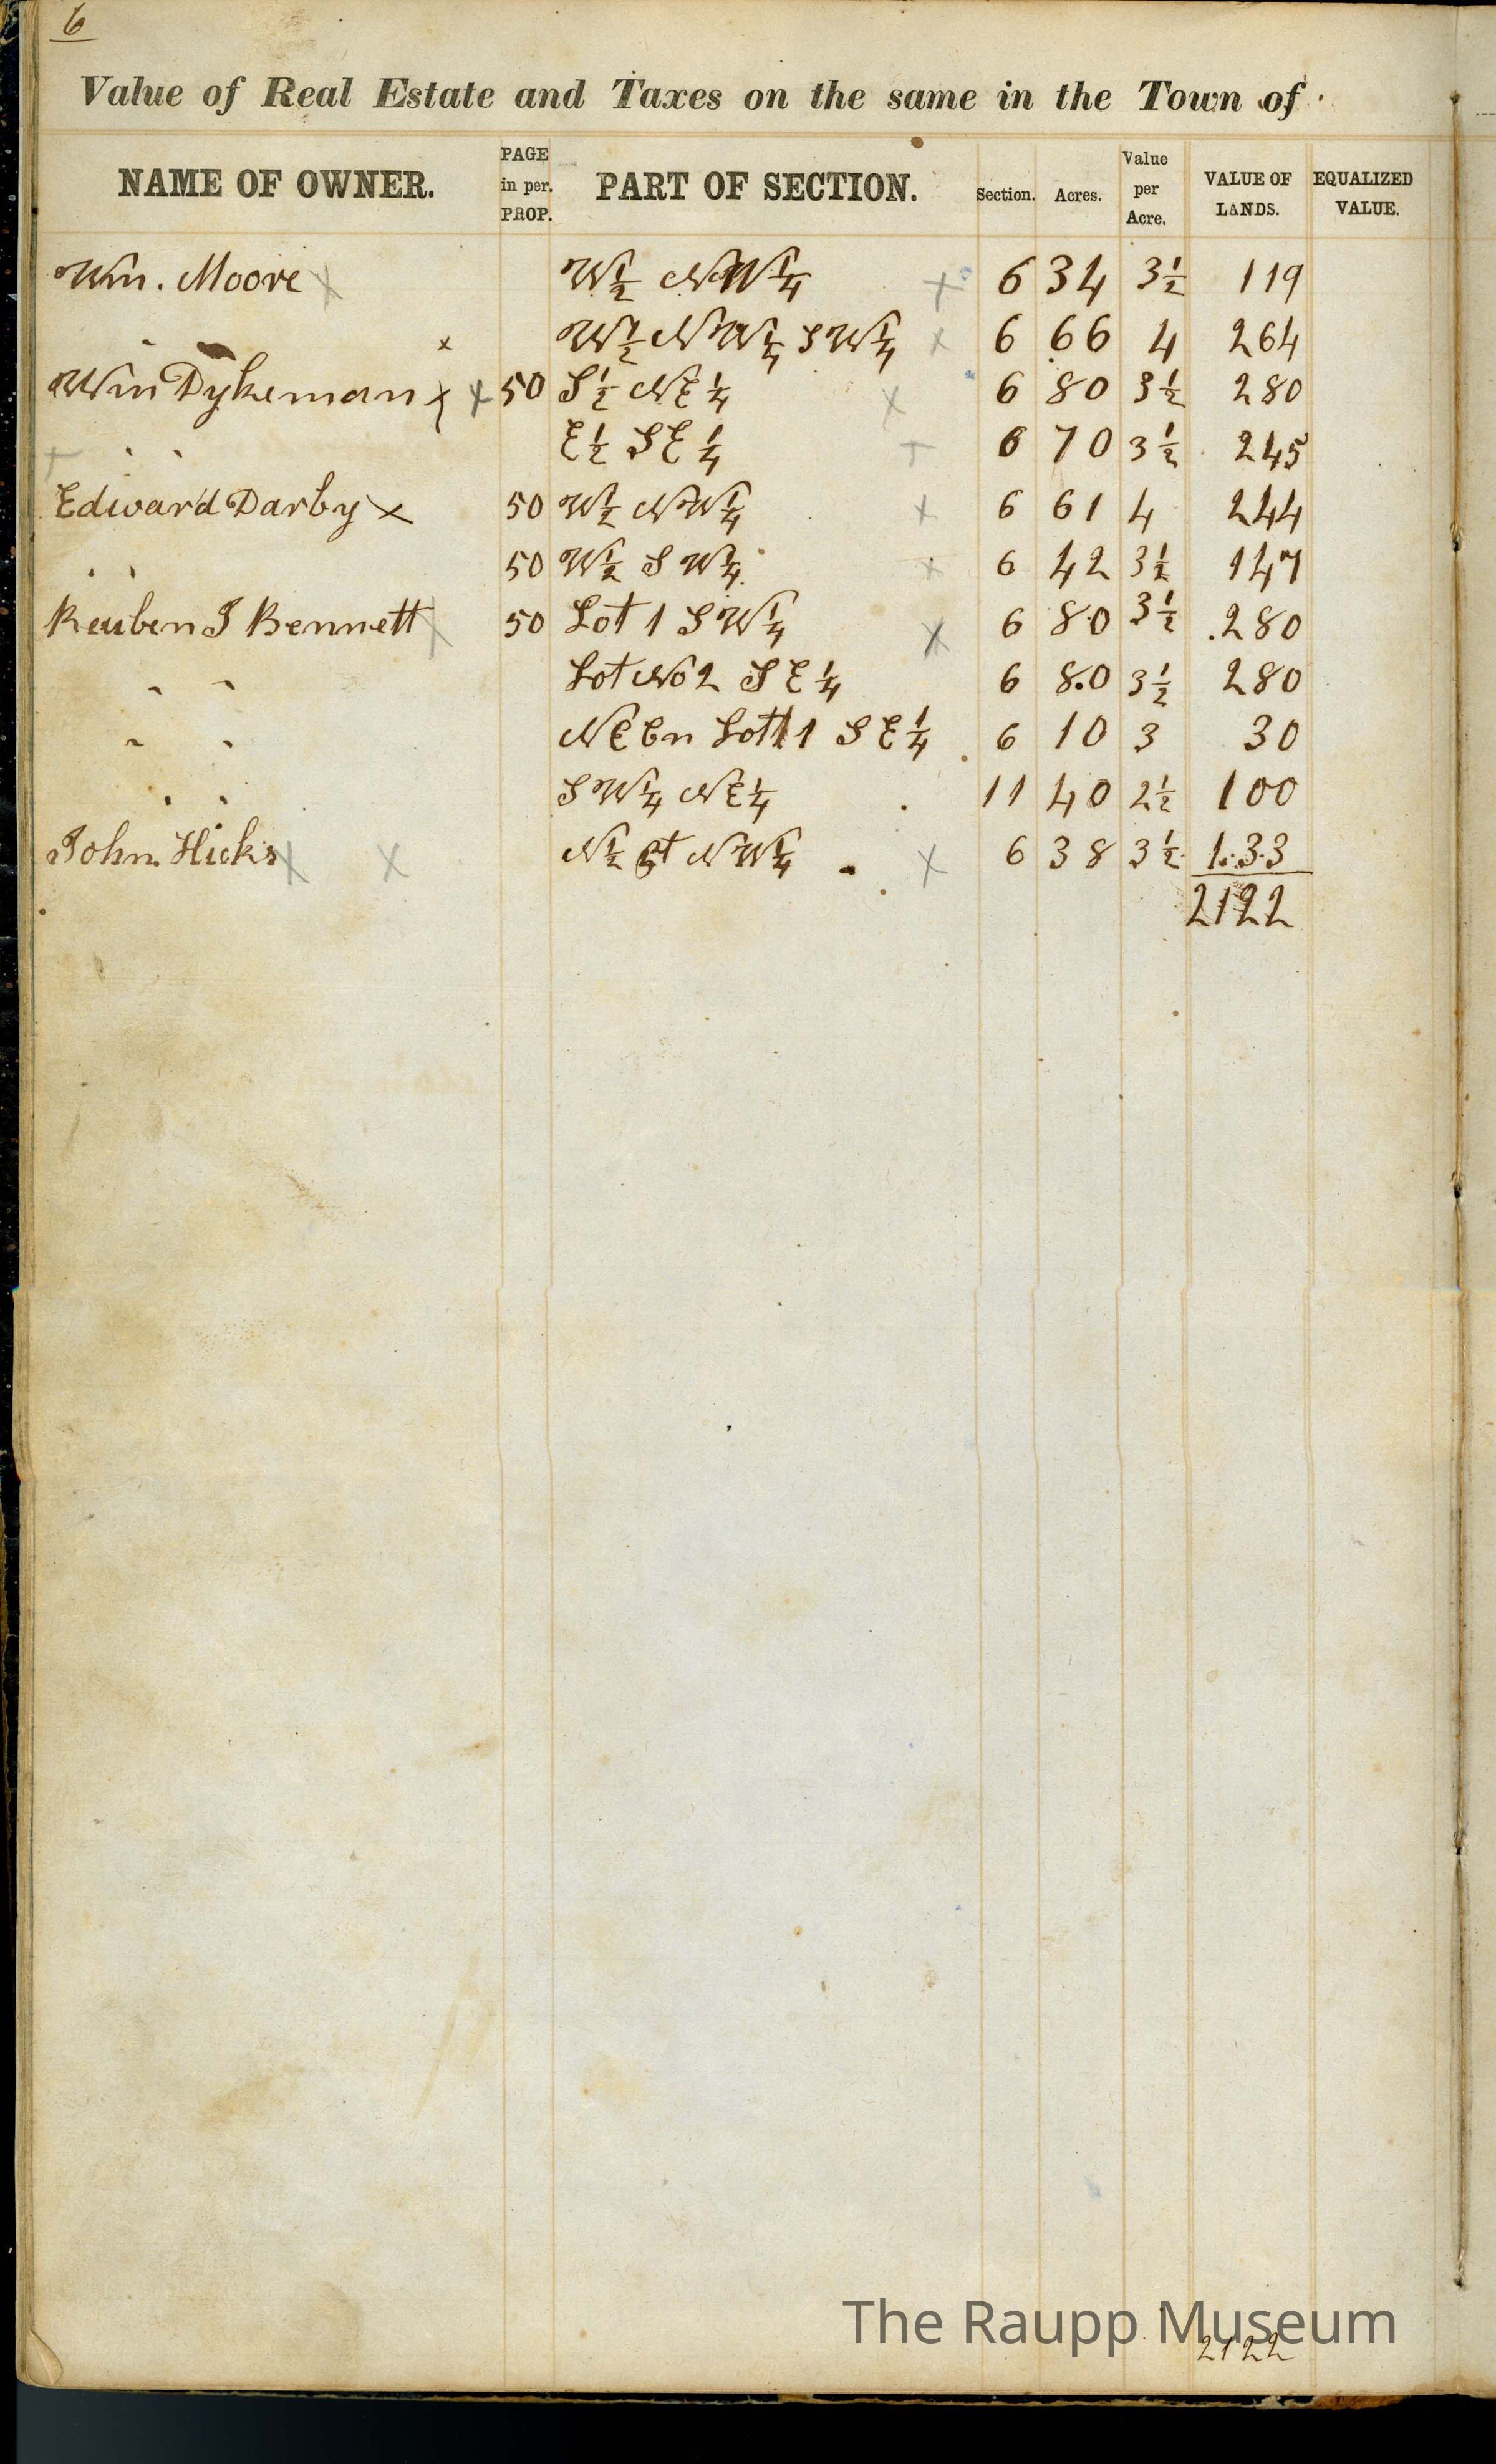 6
Value of Real Estate and Taxes on the same in the Town of
NAME OF OWNER. PAGE in per. PROP. PART OF SECTION. Section. Acres. Value per Acre. VALUE OF LANDS. EQUALIZED VALUE.
Wm. Moore x W 1/2 NW 1/4 x 6 34 3 1/2 119
" x W 1/2 NW 1/4 SW 1/4 x 6 66 4 264
Wm Dykeman x x 50 S 1/2 NE 1/4 x 6 80 3 1/2 280
" " E 1/2 SE 1/4 6 70 3 1/2 245
Edward Darby x 50 W 1/2 NW 1/4 x 6 61 4 244
" " 50 W 1/2 SW 1/4 x 6 42 3 1/2 147
Reuben J Bennett x 50 Lot 1 SW 1/4 x 6 80 3 1/2 280
" " Lot No 2 SE 1/4 6 80 3 1/2 280
" " NE Cn Lot 1 SE 1/4 6 10 3 30
" " SW 1/4 NE 1/4 11 40 2 1/2 100
John Hicks x x N 1/2 NW 1/4 x 6 38 3 1/2 133
2122
The Raupp Museum
2122